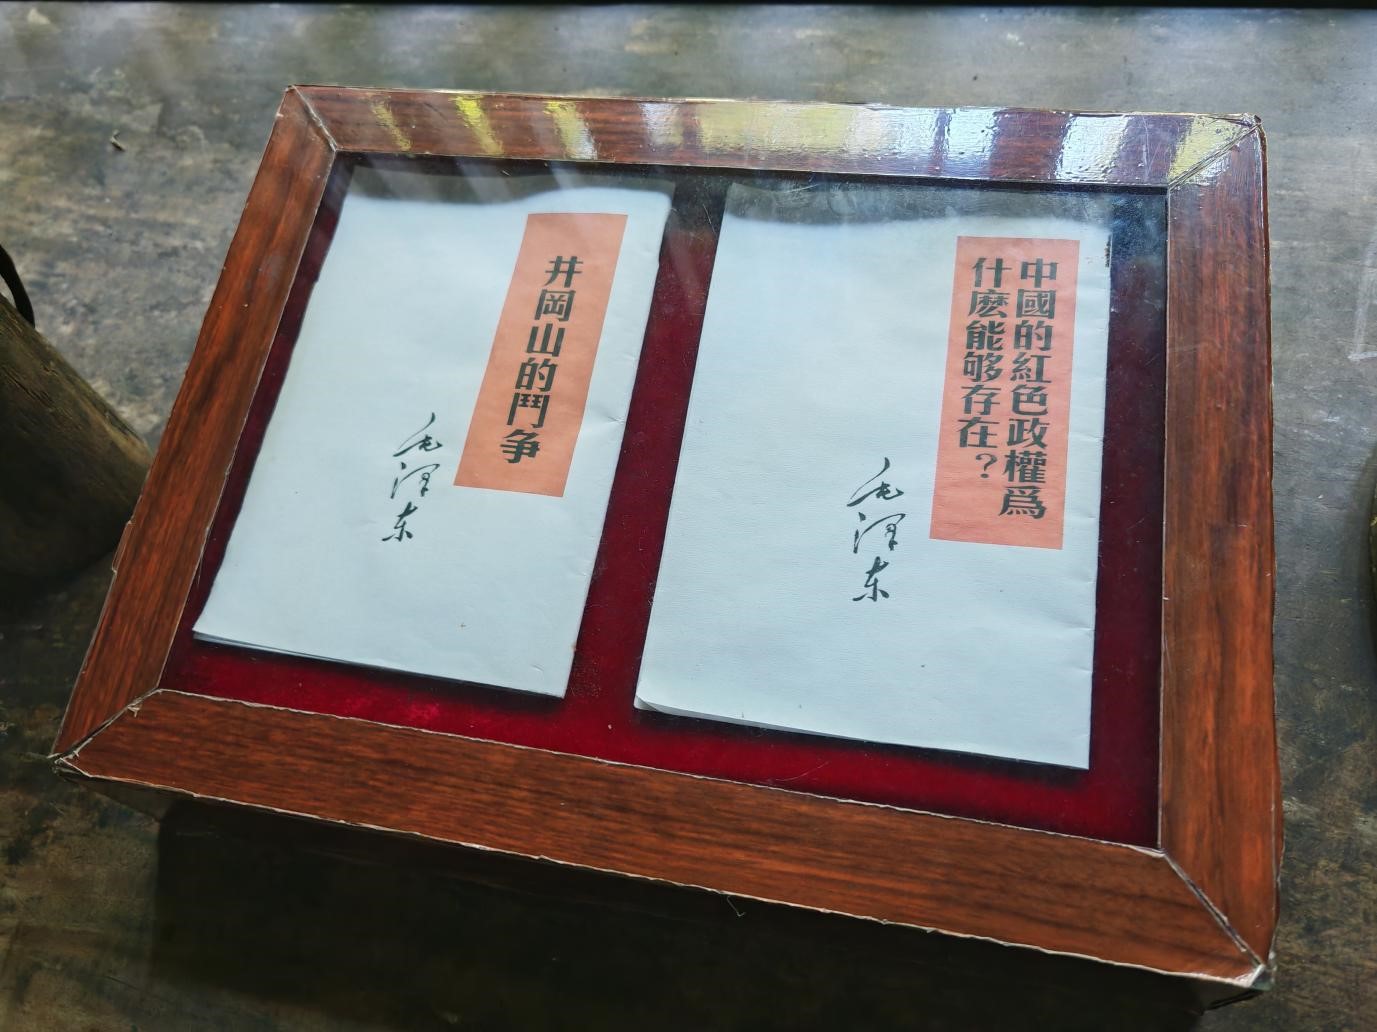 井岡山的鬥争
毛泽东
中國的紅色政權爲
什麽能够存在？
毛泽东